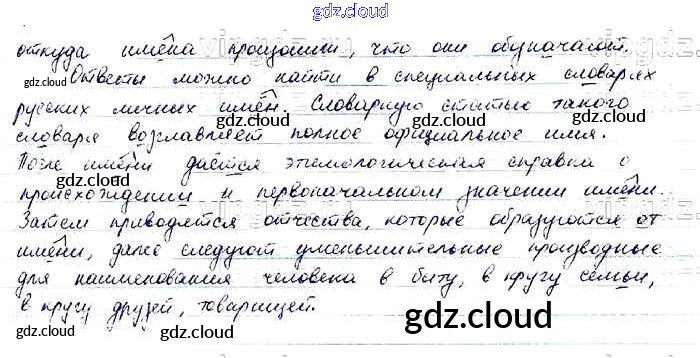 gdz.cloud
откуда имена произошли, что они обозначают.
Ответы можно найти в специальных словарях
русских личных имен. Словарную статью такого
словаря возглавляет полное официальное имя.
После имени даётся этимологическая справка о
происхождении и первоначальном значении имени.
Затем приводятся отчества, которые образуются от
имени, далее следуют уменьшительные производные
для наименования человека в быту, в кругу семьи,
в кругу друзей, товарищей.
gdz.cloud